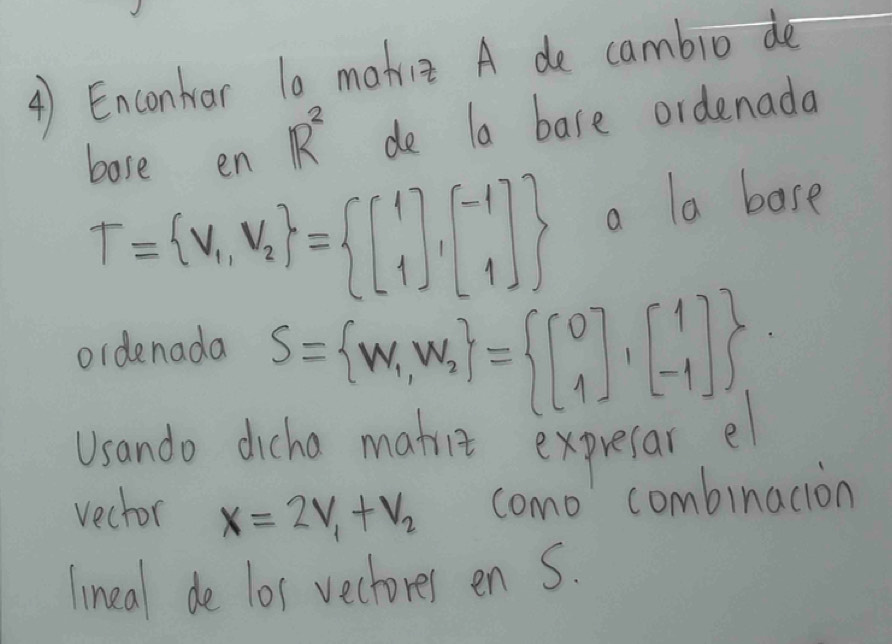 4) Encontrar la matriz A de cambio de
base en ℝ² de la base ordenada
T = {V₁, V₂} = {[1 1], [-1 1]} a la base
ordenada S = {W₁, W₂} = {[0 1], [1 -1]}.
Usando dicha matriz expresar el
vector X = 2V₁ + V₂ como combinación
lineal de los vectores en S.